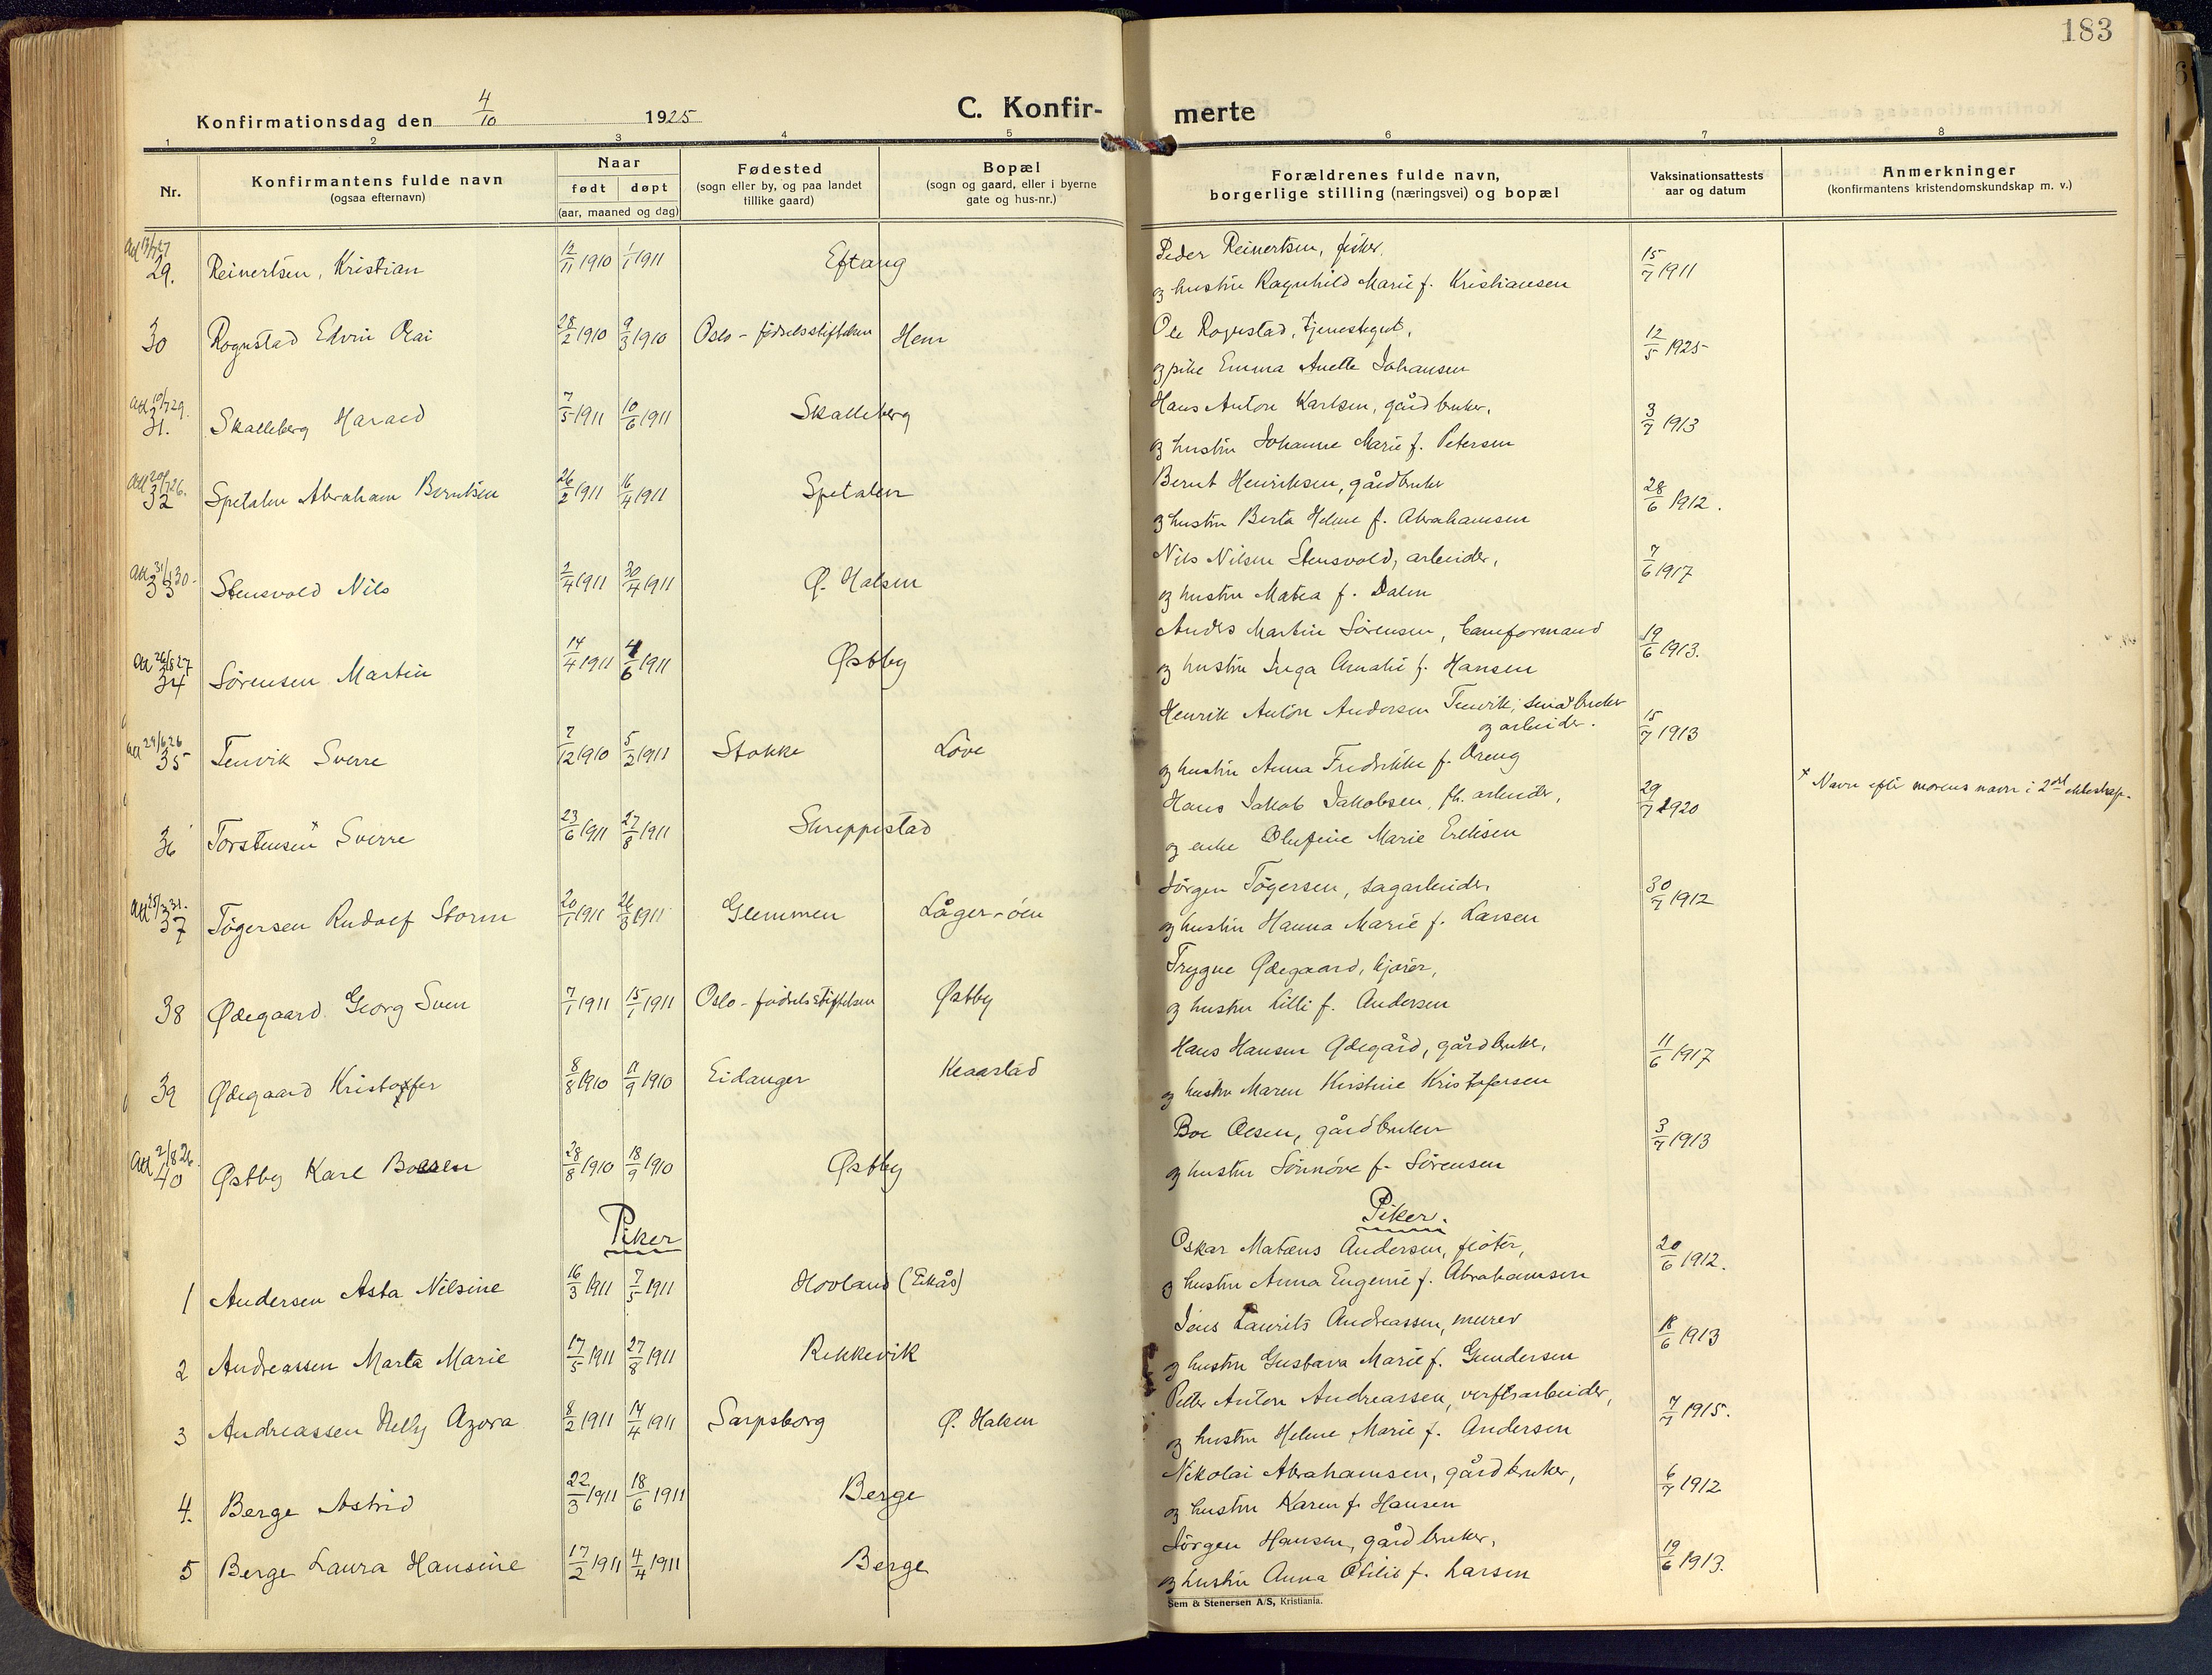 183
Konfirmationsdag den 4/10 1925
C. Konfir-merte
1 2 3 4 5 6 7 8
Nr.
Konfirmantens fulde navn
(ogsaa efternavn)
Naar
født døpt
(aar, maaned og dag)
Fødested
(sogn eller by, og paa landet
tillike gaard)
Bopæl
(sogn og gaard, eller i byerne
gate og hus-nr.)
Forældrenes fulde navn,
borgerlige stilling (næringsvei) og bopæl
Vaksinationsattests
aar og datum
Anmerkninger
(konfirmantens kristendomskundskap m. v.)
29. Reinertsen, Kristian 12/11 1910 1/1 1911 Eftang
Peder Reinertsen, fisker,
og hustru Ragnhild Marie f. Kristiansen 15/7 1911
30 Rognstad Edvin Olai 28/2 1910 9/3 1910 Oslo - fødselsstiftelsen Hem
Ole Rognstad, tjenestegut,
og pike Emma Anette Johansen 12/5 1925
Att 10/7 29.
31. Skalleberg Harald 7/5 1911 10/6 1911 Skalleberg
Hans Anton Karlsen, gårdbruker,
og hustru Johanne Marie f. Petersen 3/7 1913
Att 20/7 26.
32 Spetalen Abraham Berntsen 26/2 1911 16/4 1911 Spetalen
Bernt Henriksen, gårdbruker
og hustru Berta Helene f. Abrahamsen 28/6 1912.
Att 31/1 30.
33 Stensvold Nils 2/4 1911 30/4 1911 Ø. Halsen
Nils Nilsen Stensvold, arbeider,
og hustru Matea f. Dalen 7/6 1917
Att 26/8 27
34 Sørensen Martin 14/4 1911 4/6 1911 Østby
Anders Martin Sørensen, baneformand
og hustru Inga Amalie f. Hansen 19/6 1913.
Att 29/6 26
35 Tenvik Sverre 7/12 1910 5/2 1911 Stokke Løve
Henrik Anton Andersen Tenvik, småbruker
og arbeider.
og hustru Anna Fredrikke f. Oreng 15/7 1913
36 Torstensen x Sverre 23/6 1911 27/8 1911 Skreppestad
Hans Jakob Jakobsen, fh. arbeider,
og enke Olufine Marie Eriksen 29/7 1920
x Navn efter morens navn i 2det ekteskap.
Att 25/3 31.
37 Tøgersen Rudolf Storm 20/1 1911 26/3 1911 Glemmen Låger-øen
Jørgen Tøgersen, sagarbeider,
og hustru Hanna Marie f. Larsen 30/7 1912
38 Ødegaard Georg Sven 7/1 1911 15/1 1911 Oslo - fødselsstiftelsen Østby
Trygve Ødegaard, kjører,
og hustru Lilli f. Andersen
39 Ødegaard Kristoffer 8/8 1910 11/9 1910 Eidanger Klaastad
Hans Hansen Ødegård, gårdbruker,
og hustru Maren Kirstine Kristofersen 11/6 1917
Att 2/8 26.
40 Østby Karl Boesen 28/8 1910 18/9 1910 Østby
Boe Olsen, gårdbruker
og hustru Sønnøve f. Sørensen 3/7 1913
Piker
Piker.
1 Andersen Asta Nilsine 16/3 1911 7/5 1911 Hovland (Eikås)
Oskar Matæus Andersen, fløter,
og hustru Anna Eugenie f. Abrahamsen 20/6 1912.
2 Andreassen Marta Marie 17/5 1911 27/8 1911 Rekkevik
Jens Laurits Andreassen, murer
og hustru Gustava Marie f. Gundersen 18/6 1913
3 Andreassen Nelly Azora 8/2 1911 14/4 1911 Sarpsborg Ø. Halsen
Peter Anton Andreassen, verftsarbeider,
og hustru Helene Marie f. Andersen 7/7 1915.
4. Berge Astrid 22/3 1911 18/6 1911 Berge
Nikolai Abrahamsen, gårdbruker,
og hustru Karen f. Hansen 6/7 1912
5 Berge Laura Hansine 17/2 1911 4/4 1911 Berge
Jørgen Hansen, gårdbruker,
og hustru Anna Otilie f. Larsen 19/6 1913.
Sem & Stenersen A/S, Kristiania.